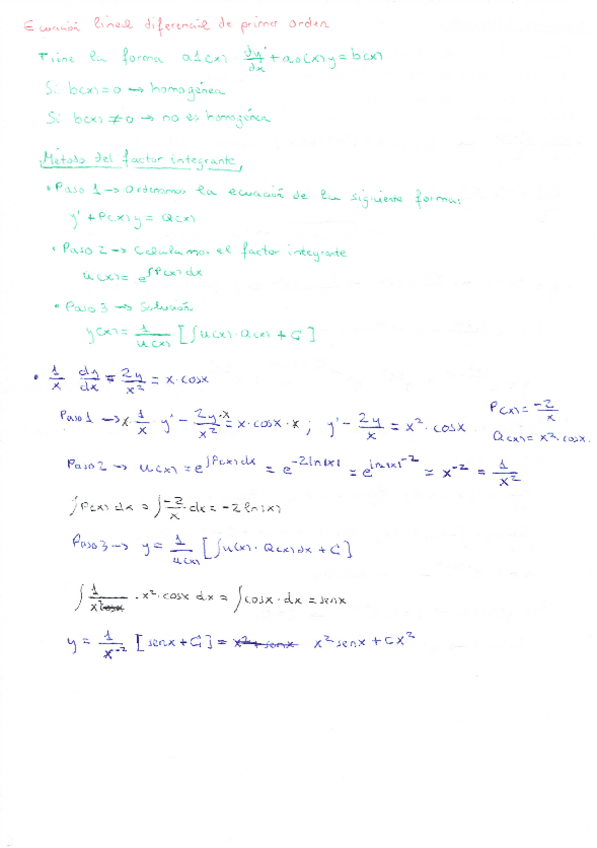 Ecuación lineal diferencial de primer orden
Tiene la forma a1(x) dy/dx + a0(x)y = b(x)
Si b(x) = 0 → homogénea
Si b(x) ≠ 0 → no es homogénea
Método del factor integrante
• Paso 1 → Ordenamos la ecuación de la siguiente forma:
y' + P(x)y = Q(x)
• Paso 2 → Calculamos el factor integrante
u(x) = e^∫P(x)dx
• Paso 3 → Solución
y(x) = 1/u(x) [∫u(x)·Q(x) + C]
• 1/x dy/dx = 2y/x² = x·cosx
Paso 1 → x·1/x y' - 2y/x²·x = x·cosx·x ; y' - 2y/x = x²·cosx
P(x) = -2/x
Q(x) = x²·cosx.
Paso 2 → u(x) = e^∫P(x)dx = e^-2ln|x| = e^ln|x|^-2 = x^-2 = 1/x²
∫P(x)dx = ∫-2/x·dx = -2ln|x|
Paso 3 → y = 1/u(x) [∫u(x)·Q(x)dx + C]
∫1/x²·x²·cosx dx = ∫cosx·dx = senx
y = 1/x^-2 [senx + C] = x² senx + Cx²